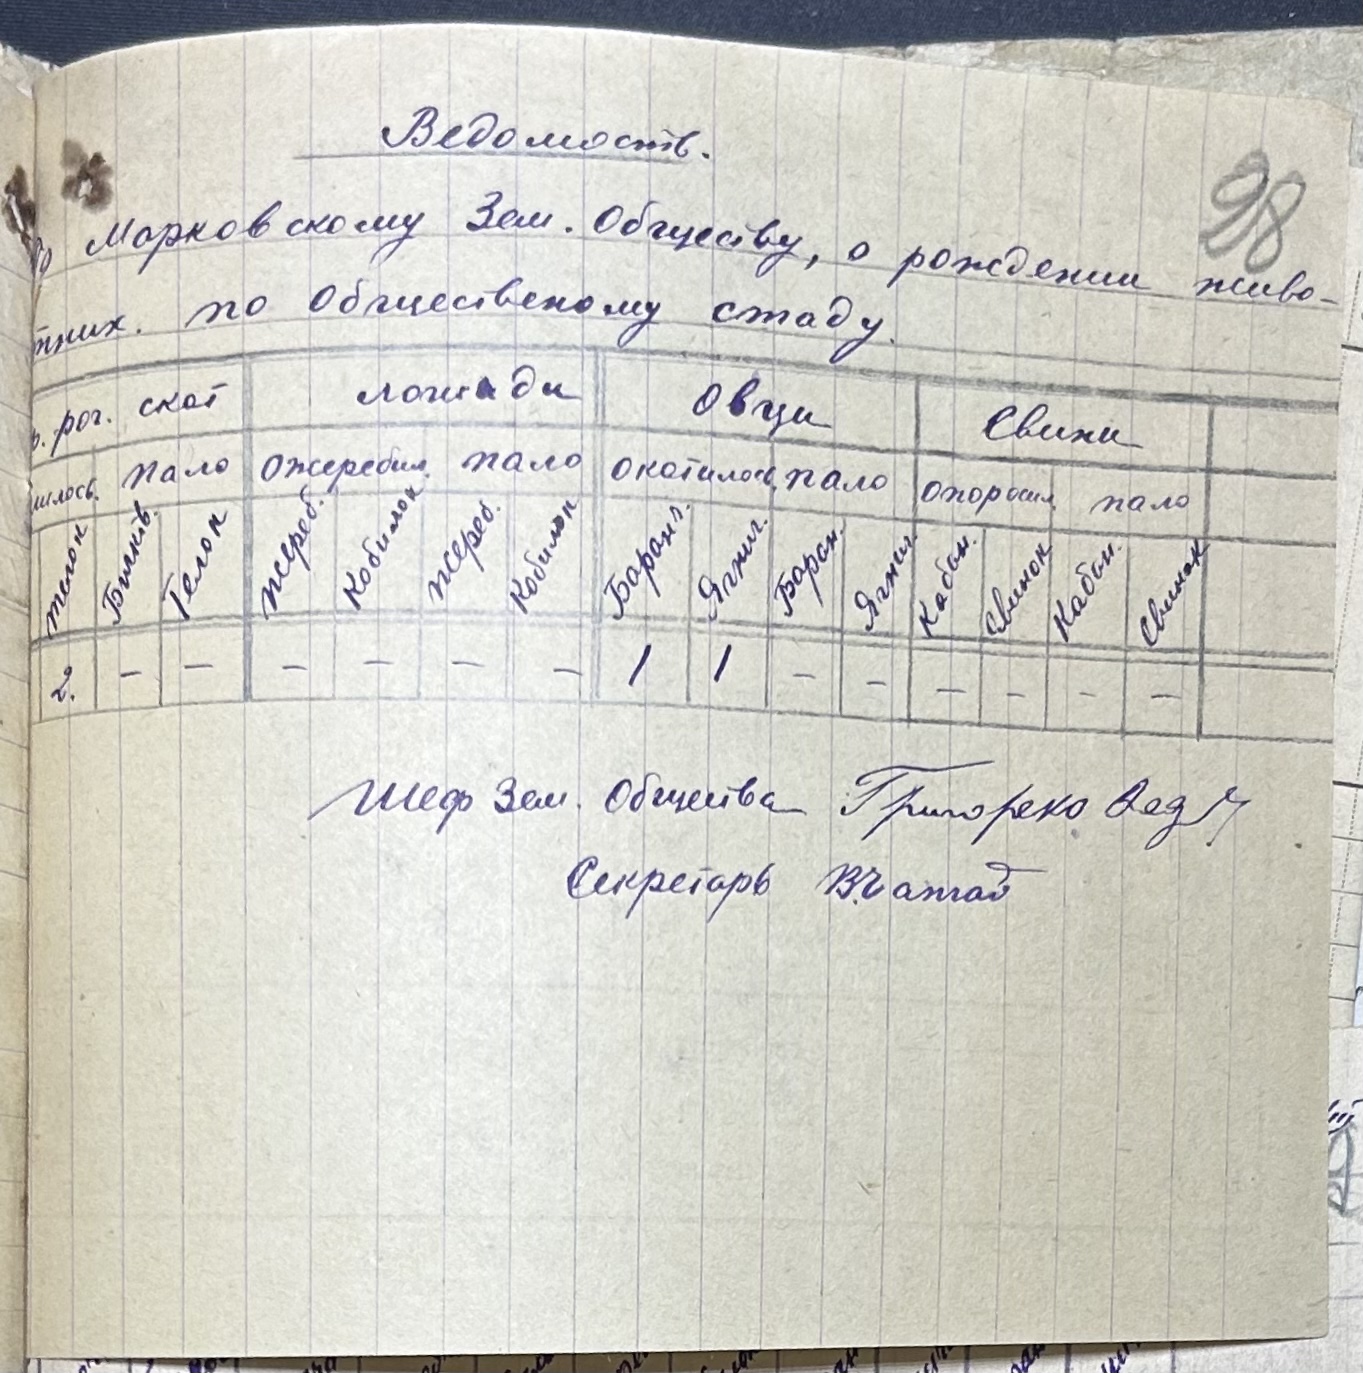 Ведомость.
98
По Марковскому Зем. Обществу, о рождении живо-
тних. по Общественому стаду.
р. рог. скот лошади Овци Свини
пало ожеребил. пало окотилось пало опоросил. пало
телок Бычков. Телок Жереб. Кобилок Жереб. Кобилок Баранч. Ягниц. Баран. Ягниц. Кабан. Свинок Кабан. Свинок
2. – – – – – – 1 1 – – – – – –
Шеф Зем. Общества Григоренко
Секретарь